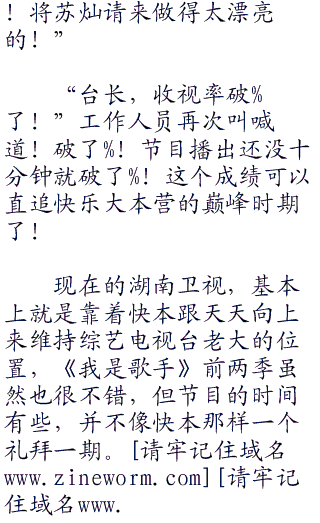 ！将苏灿请来做得太漂亮
的！”
“台长，收视率破%
了！”工作人员再次叫喊
道！破了%！节目播出还没十
分钟就破了%！这个成绩可以
直追快乐大本营的巅峰时期
了！
现在的湖南卫视，基本
上就是靠着快本跟天天向上
来维持综艺电视台老大的位
置，《我是歌手》前两季虽
然也很不错，但节目的时间
有些，并不像快本那样一个
礼拜一期。[请牢记住域名
www.zineworm.com][请牢记
住域名www.